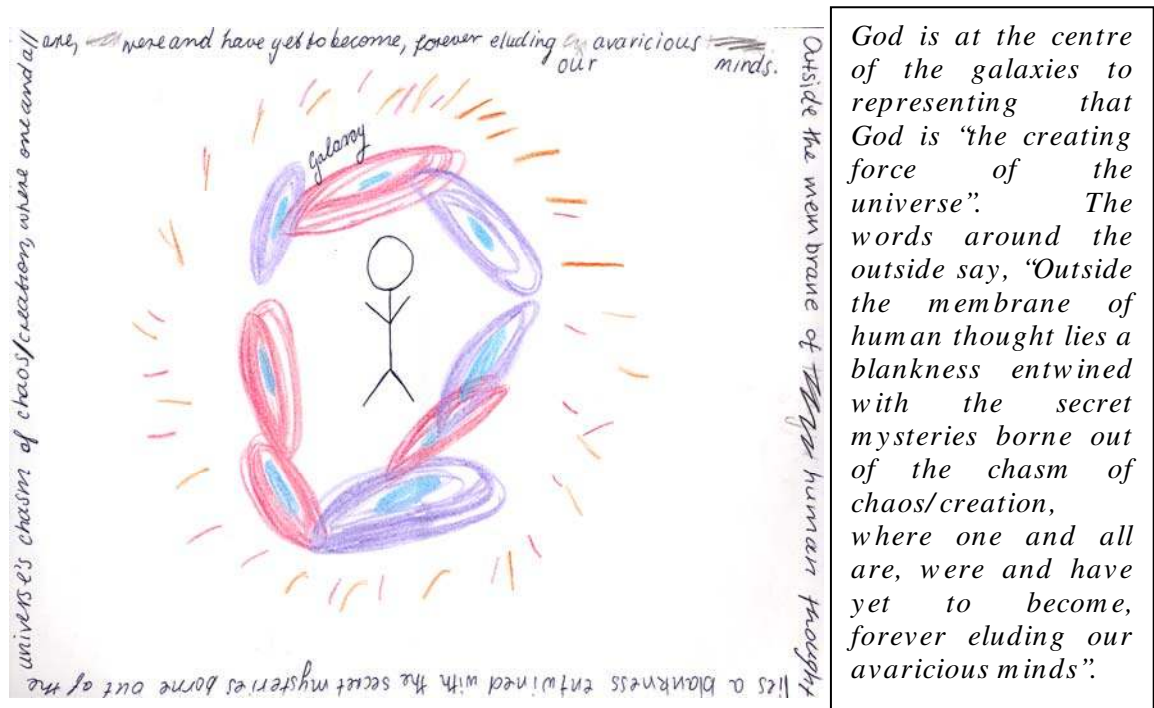 Outside the membrane of human thought
lies a blankness entwined with the secret mysteries borne out of the
universe's chasm of chaos/creation, where one and all
are, were and have yet to become, forever eluding avaricious
our minds.
Galaxy
God is at the centre
of the galaxies to
representing that
God is “the creating
force of the
universe”. The
words around the
outside say, “Outside
the membrane of
human thought lies a
blankness entwined
with the secret
mysteries borne out
of the chasm of
chaos/creation,
where one and all
are, were and have
yet to become,
forever eluding our
avaricious minds”.